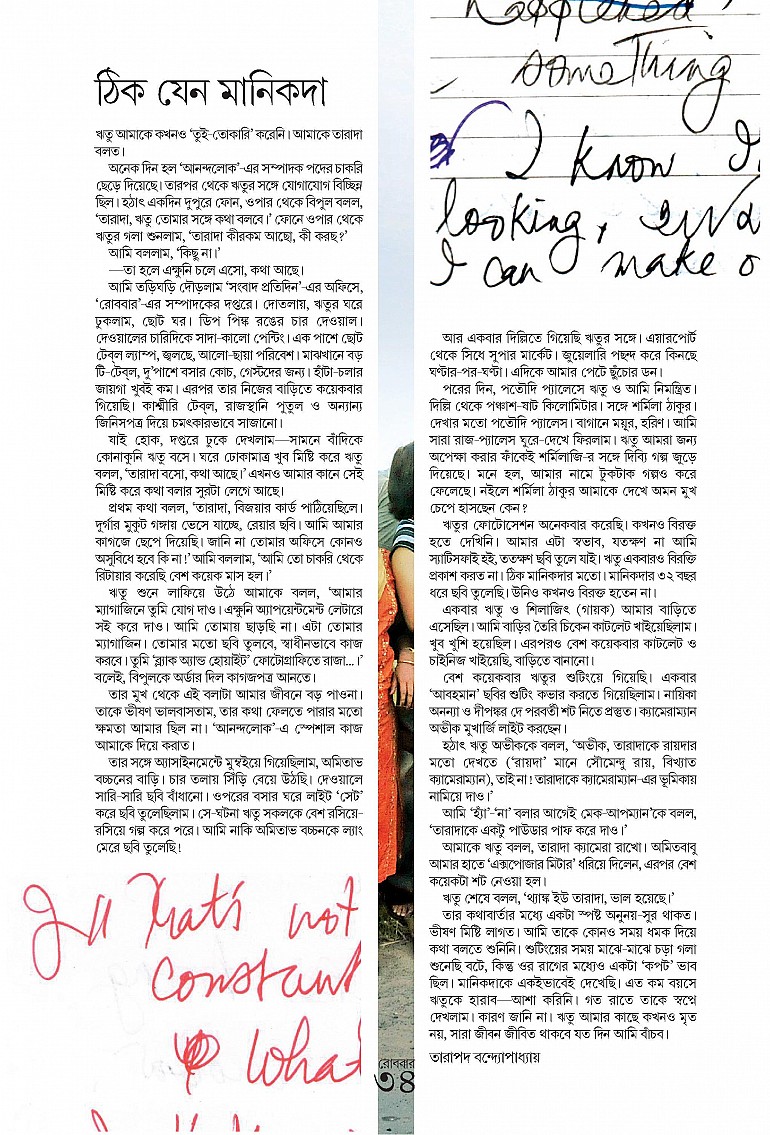 ঠিক যেন মানিকদা
ঋতু আমাকে কখনও ‘তুই-তোকারি’ করেনি। আমাকে তারাদা
বলত।
অনেক দিন হল ‘আনন্দলোক’-এর সম্পাদক পদের চাকরি
ছেড়ে দিয়েছে। তারপর থেকে ঋতুর সঙ্গে যোগাযোগ বিচ্ছিন্ন
ছিল। হঠাৎ একদিন দুপুরে ফোন, ওপার থেকে বিপুল বলল,
‘তারাদা, ঋতু তোমার সঙ্গে কথা বলবে।’ ফোনে ওপার থেকে
ঋতুর গলা শুনলাম, ‘তারাদা কীরকম আছো, কী করছ?’
আমি বললাম, ‘কিছু না।’
—তা হলে এক্ষুনি চলে এসো, কথা আছে।
আমি তড়িঘড়ি দৌড়লাম ‘সংবাদ প্রতিদিন’-এর অফিসে,
‘রোববার’-এর সম্পাদকের দপ্তরে। দোতলায়, ঋতুর ঘরে
ঢুকলাম, ছোট ঘর। ডিপ পিঙ্ক রঙের চার দেওয়াল।
দেওয়ালের চারিদিকে সাদা-কালো পেন্টিং। এক পাশে ছোট
টেব্‌ল ল্যাম্প, জ্বলছে, আলো-ছায়া পরিবেশ। মাঝখানে বড়
টি-টেব্‌ল, দু’পাশে বসার কোচ, গেস্টদের জন্য। হাঁটা-চলার
জায়গা খুবই কম। এরপর তার নিজের বাড়িতে কয়েকবার
গিয়েছি। কাশ্মীরি টেব্‌ল, রাজস্থানি পুতুল ও অন্যান্য
জিনিসপত্র দিয়ে চমৎকারভাবে সাজানো।
যাই হোক, দপ্তরে ঢুকে দেখলাম—সামনে বাঁদিকে
কোনাকুনি ঋতু বসে। ঘরে ঢোকামাত্র খুব মিষ্টি করে ঋতু
বলল, ‘তারাদা বসো, কথা আছে।’ এখনও আমার কানে সেই
মিষ্টি করে কথা বলার সুরটা লেগে আছে।
প্রথম কথা বলল, ‘তারাদা, বিজয়ার কার্ড পাঠিয়েছিলে।
দুর্গার মুকুট গঙ্গায় ভেসে যাচ্ছে, রেয়ার ছবি। আমি আমার
কাগজে ছেপে দিয়েছি। জানি না তোমার অফিসে কোনও
অসুবিধে হবে কি না!’ আমি বললাম, ‘আমি তো চাকরি থেকে
রিটায়ার করেছি বেশ কয়েক মাস হল।’
ঋতু শুনে লাফিয়ে উঠে আমাকে বলল, ‘আমার
ম্যাগাজিনে তুমি যোগ দাও। এক্ষুনি অ্যাপয়েন্টমেন্ট লেটারে
সই করে দাও। আমি তোমায় ছাড়ছি না। এটা তোমার
ম্যাগাজিন। তোমার মতো ছবি তুলবে, স্বাধীনভাবে কাজ
করবে। তুমি ‘ব্ল্যাক অ্যান্ড হোয়াইট’ ফোটোগ্রাফিতে রাজা...।’
বলেই, বিপুলকে অর্ডার দিল কাগজপত্র আনতে।
তার মুখ থেকে এই বলাটা আমার জীবনে বড় পাওনা।
তাকে ভীষণ ভালবাসতাম, তার কথা ফেলতে পারার মতো
ক্ষমতা আমার ছিল না। ‘আনন্দলোক’-এ স্পেশাল কাজ
আমাকে দিয়ে করাত।
তার সঙ্গে অ্যাসাইনমেন্টে মুম্বইয়ে গিয়েছিলাম, অমিতাভ
বচ্চনের বাড়ি। চার তলায় সিঁড়ি বেয়ে উঠছি। দেওয়ালে
সারি-সারি ছবি বাঁধানো। ওপরের বসার ঘরে লাইট ‘সেট’
করে ছবি তুলেছিলাম। সে-ঘটনা ঋতু সকলকে বেশ রসিয়ে-
রসিয়ে গল্প করে পরে। আমি নাকি অমিতাভ বচ্চনকে ল্যাং
মেরে ছবি তুলেছি!
that's not
constant
what
happened,
something
I know I
looking,
I can make o
আর একবার দিল্লিতে গিয়েছি ঋতুর সঙ্গে। এয়ারপোর্ট
থেকে সিধে সুপার মার্কেট। জুয়েলারি পছন্দ করে কিনছে
ঘণ্টার-পর-ঘণ্টা। এদিকে আমার পেটে ছুঁচোর ডন।
পরের দিন, পতৌদি প্যালেসে ঋতু ও আমি নিমন্ত্রিত।
দিল্লি থেকে পঞ্চাশ-ষাট কিলোমিটার। সঙ্গে শর্মিলা ঠাকুর।
দেখার মতো পতৌদি প্যালেস। বাগানে ময়ূর, হরিণ। আমি
সারা রাজ-প্যালেস ঘুরে-দেখে ফিরলাম। ঋতু আমরা জন্য
অপেক্ষা করার ফাঁকেই শর্মিলাজি-র সঙ্গে দিব্যি গল্প জুড়ে
দিয়েছে। মনে হল, আমার নামে টুকটাক গল্পও করে
ফেলেছে। নইলে শর্মিলা ঠাকুর আমাকে দেখে অমন মুখ
চেপে হাসছেন কেন?
ঋতুর ফোটোসেশন অনেকবার করেছি। কখনও বিরক্ত
হতে দেখিনি। আমার এটা স্বভাব, যতক্ষণ না আমি
স্যাটিসফাই হই, ততক্ষণ ছবি তুলে যাই। ঋতু একবারও বিরক্তি
প্রকাশ করত না। ঠিক মানিকদার মতো। মানিকদার ৩২ বছর
ধরে ছবি তুলেছি। উনিও কখনও বিরক্ত হতেন না।
একবার ঋতু ও শিলাজিৎ (গায়ক) আমার বাড়িতে
এসেছিল। আমি বাড়ির তৈরি চিকেন কাটলেট খাইয়েছিলাম।
খুব খুশি হয়েছিল। এরপরও বেশ কয়েকবার কাটলেট ও
চাইনিজ খাইয়েছি, বাড়িতে বানানো।
বেশ কয়েকবার ঋতুর শুটিংয়ে গিয়েছি। একবার
‘আবহমান’ ছবির শুটিং কভার করতে গিয়েছিলাম। নায়িকা
অনন্যা ও দীপঙ্কর দে পরবর্তী শট নিতে প্রস্তুত। ক্যামেরাম্যান
অভীক মুখার্জি লাইট করছেন।
হঠাৎ ঋতু অভীককে বলল, ‘অভীক, তারাদাকে রায়দার
মতো দেখতে (‘রায়দা’ মানে সৌমেন্দু রায়, বিখ্যাত
ক্যামেরাম্যান), তাই না! তারাদাকে ক্যামেরাম্যান-এর ভূমিকায়
নামিয়ে দাও।’
আমি ‘হ্যাঁ’-‘না’ বলার আগেই মেক-আপম্যান’কে বলল,
‘তারাদাকে একটু পাউডার পাফ করে দাও।’
আমাকে ঋতু বলল, তারাদা ক্যামেরা রাখো। অমিতবাবু
আমার হাতে ‘এক্সপোজার মিটার’ ধরিয়ে দিলেন, এরপর বেশ
কয়েকটা শট নেওয়া হল।
ঋতু শেষে বলল, ‘থ্যাঙ্ক ইউ তারাদা, ভাল হয়েছে।’
তার কথাবার্তার মধ্যে একটা স্পষ্ট অনুনয়-সুর থাকত।
ভীষণ মিষ্টি লাগত। আমি তাকে কোনও সময় ধমক দিয়ে
কথা বলতে শুনিনি। শুটিংয়ের সময় মাঝে-মাঝে চড়া গলা
শুনেছি বটে, কিন্তু ওর রাগের মধ্যেও একটা ‘কপট’ ভাব
ছিল। মানিকদাকে একইভাবেই দেখেছি। এত কম বয়সে
ঋতুকে হারাব—আশা করিনি। গত রাতে তাকে স্বপ্নে
দেখলাম। কারণ জানি না। ঋতু আমার কাছে কখনও মৃত
নয়, সারা জীবন জীবিত থাকবে যত দিন আমি বাঁচব।
তারাপদ বন্দ্যোপাধ্যায়
রোববার
৩৪